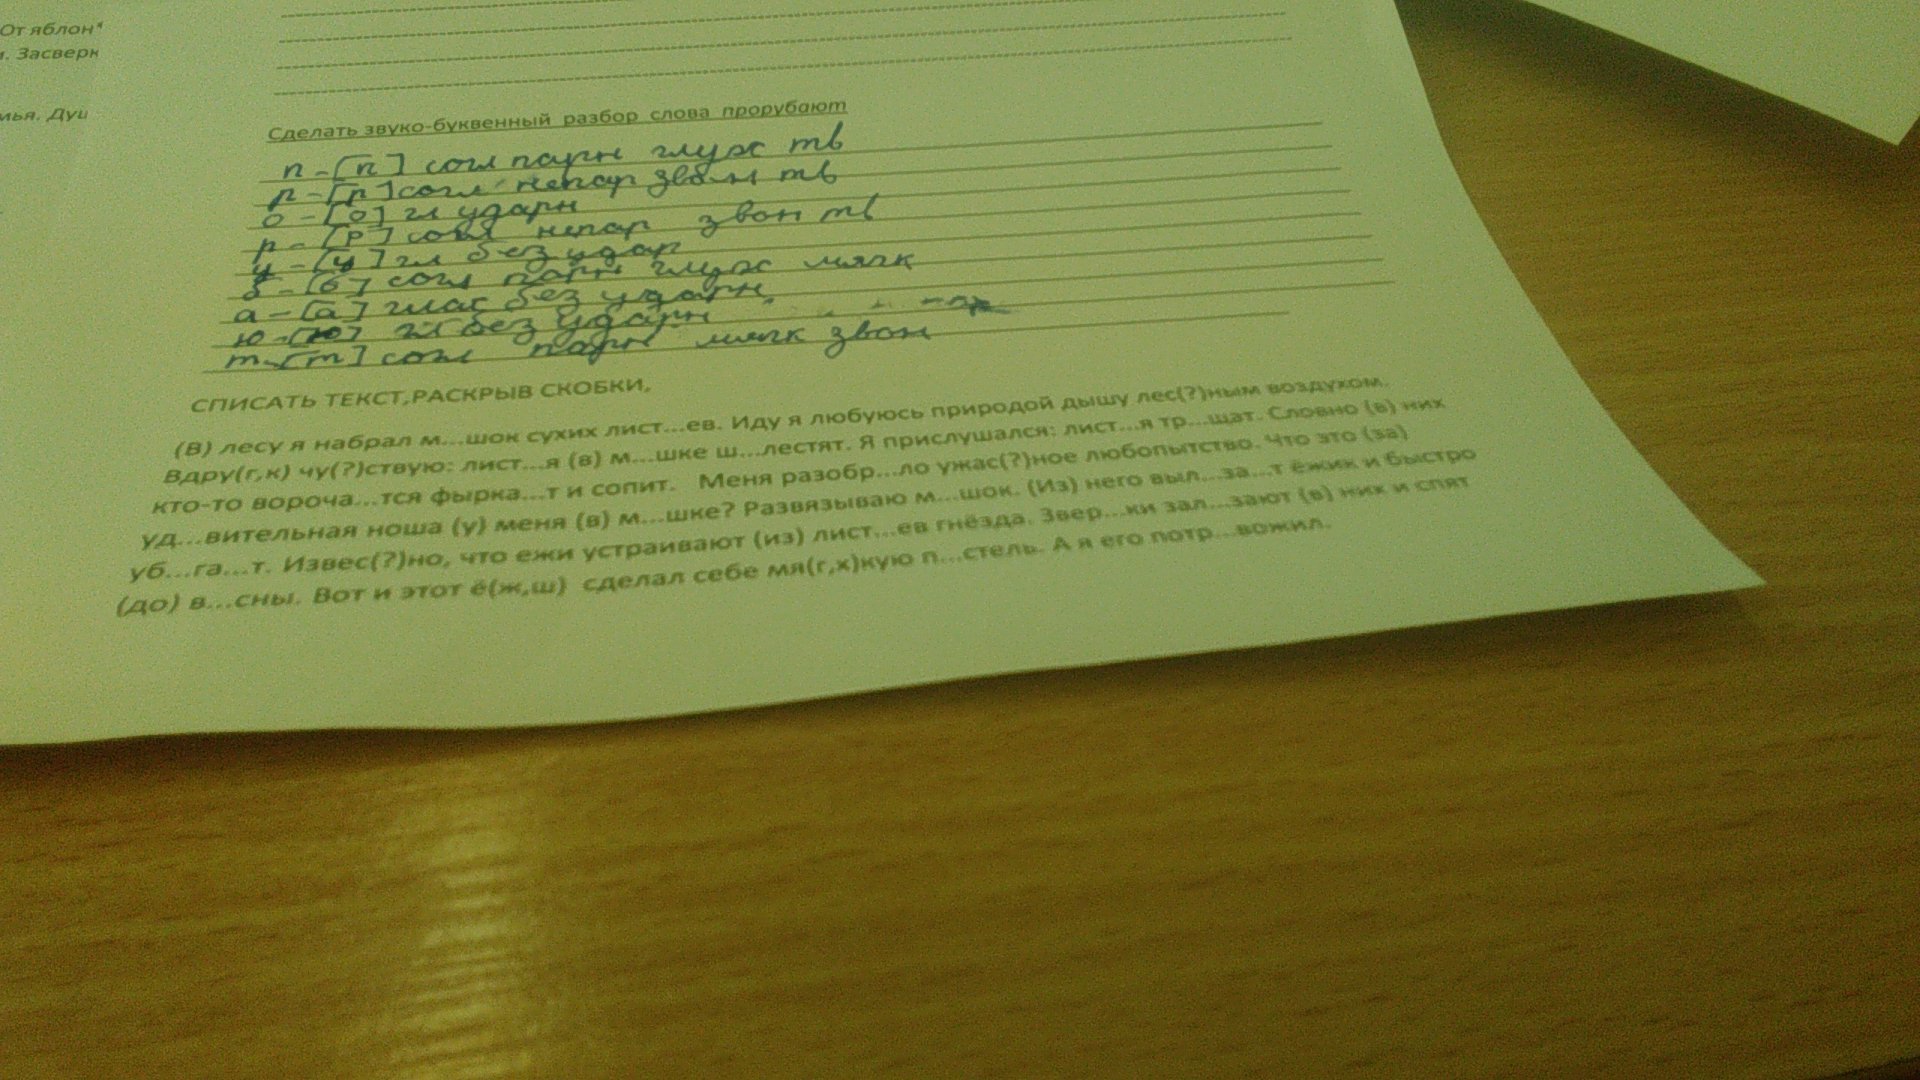 От яблон
. Засверк
мья. Душ
Сделать звуко-буквенный разбор слова прорубают
п - [п] согл парн глух тв
р - [р] согл непар звон тв
о - [о] гл ударн
р - [р] согл непар звон тв
у - [у] гл без удар
б - [б] согл парн глух мягк
а - [а] глас без ударн
ю - [ю] гл без ударн
т - [т] согл парн мягк звон
СПИСАТЬ ТЕКСТ,РАСКРЫВ СКОБКИ,
(В) лесу я набрал м...шок сухих лист...ев. Иду я любуюсь природой дышу лес(?)ным воздухом.
Вдру(г,к) чу(?)ствую: лист...я (в) м...шке ш...лестят. Я прислушался: лист...я тр...шат. Словно (в) них
кто-то вороча...тся фырка...т и сопит. Меня разобр...ло ужас(?)ное любопытство. Что это (за)
уд...вительная ноша (у) меня (в) м...шке? Развязываю м...шок. (Из) него выл...за...т ёжик и быстро
уб...га...т. Извес(?)но, что ежи устраивают (из) лист...ев гнёзда. Звер...ки зал...зают (в) них и спят
(до) в...сны. Вот и этот ё(ж,ш) сделал себе мя(г,х)кую п...стель. А я его потр...вожил.